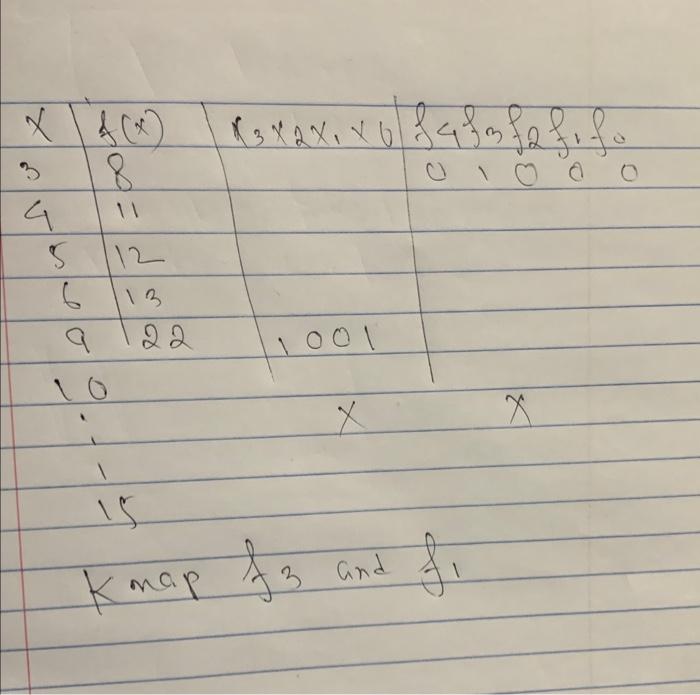 x f(x) x3x2x1x0 f4f3f2f1f0
3 8 0 1 0 0 0
4 11
5 12
6 13
9 22 1001
10
x x
15
K map f3 and f1